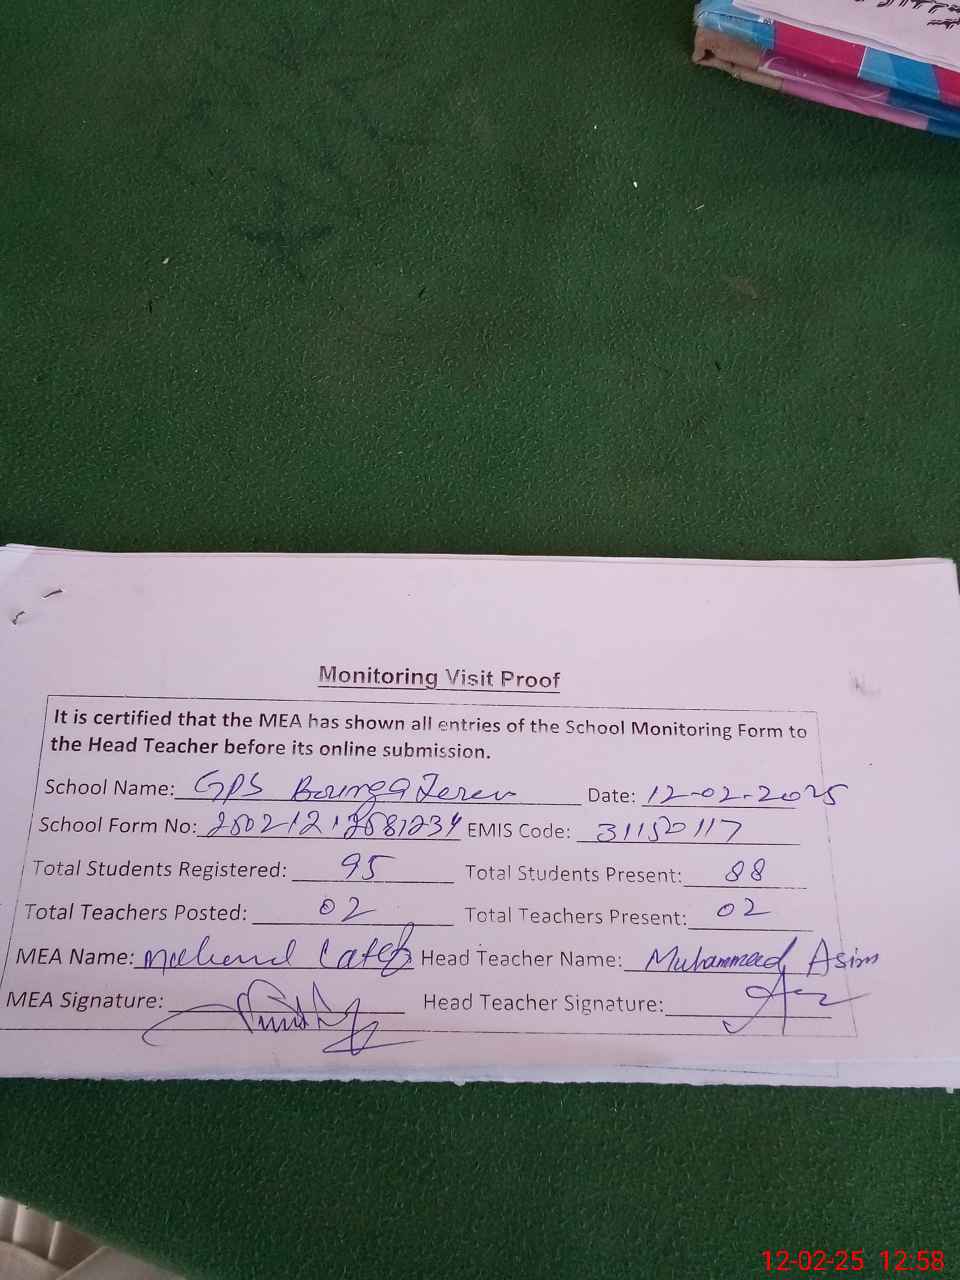 Monitoring Visit Proof
It is certified that the MEA has shown all entries of the School Monitoring Form to
the Head Teacher before its online submission.
School Name: GPS Date: 12-02-2025
School Form No: EMIS Code: 31150117
Total Students Registered: 95 Total Students Present: 88
Total Teachers Posted: 02 Total Teachers Present: 02
MEA Name: Head Teacher Name: Muhammad Asim
MEA Signature: Head Teacher Signature:
12-02-25 12:58